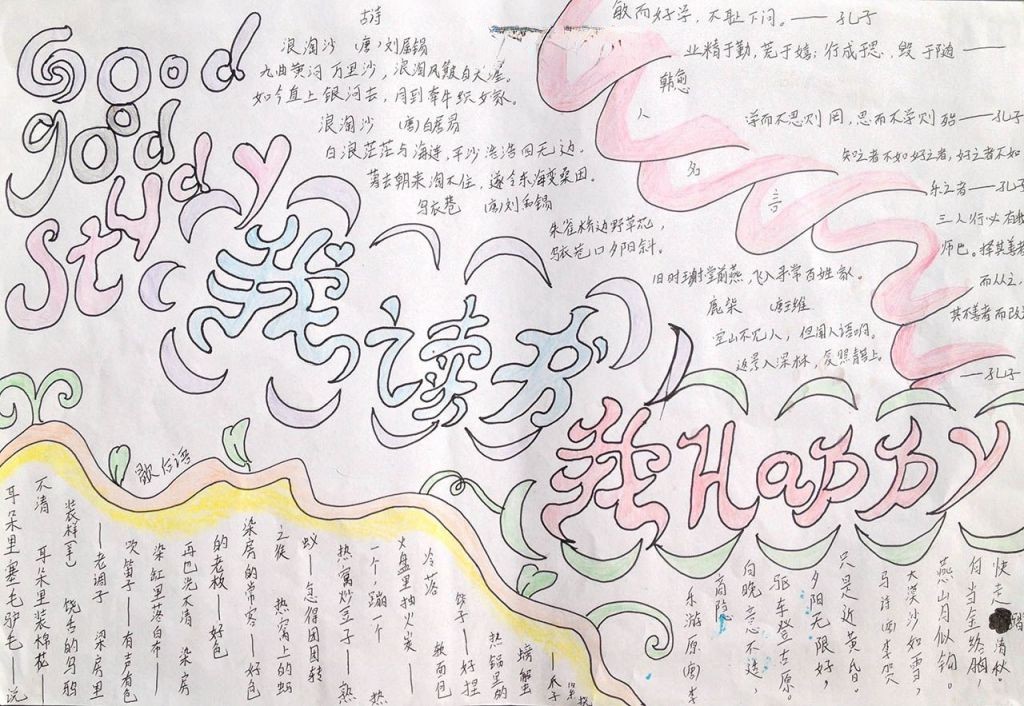 Good
good
study
古诗
浪淘沙 (唐) 刘禹锡
九曲黄河万里沙，浪淘风簸自天涯。
如今直上银河去，同到牵牛织女家。
浪淘沙 (唐) 白居易
白浪茫茫与海连，平沙浩浩四无边。
暮去朝来淘不住，遂令东海变桑田。
乌衣巷 (唐) 刘禹锡
朱雀桥边野草花，
乌衣巷口夕阳斜。
旧时王谢堂前燕，飞入寻常百姓家。
鹿柴 唐王维
空山不见人，但闻人语响。
返景入深林，复照青苔上。
敏而好学，不耻下问。——孔子
业精于勤，荒于嬉；行成于思，毁于随——
韩愈
人
名
言
学而不思则罔，思而不学则殆——孔子
知之者不如好之者，好之者不如
乐之者——孔子
三人行必有
师也。择其善者
而从之，
其不善者而改
——孔子
我读书
我Happy
歇后语
耳朵里塞毛驴毛——说
不清 耳朵里装棉花——
装样(羊) 饶舌的乌鸦
——老调子 梁房里
吹笛子——有声有色
染缸里落白布——
再也洗不清 染房
的老板——好色
染房的常客——好色
之徒 热窝上的蚂
蚁——急得团团转
热窝炒豆子——熟
一个，蹦一个 热
火盘里抽火炭——
冷落 饺子——好捏
软面包 热锅里的
螃蟹
——爪子
快走 清秋。
何当金络脑，
燕山月似钩。
大漠沙如雪，
马诗 唐 李贺
只是近黄昏。
夕阳无限好，
驱车登古原。
向晚意不适，
商隐
乐游原 唐 李